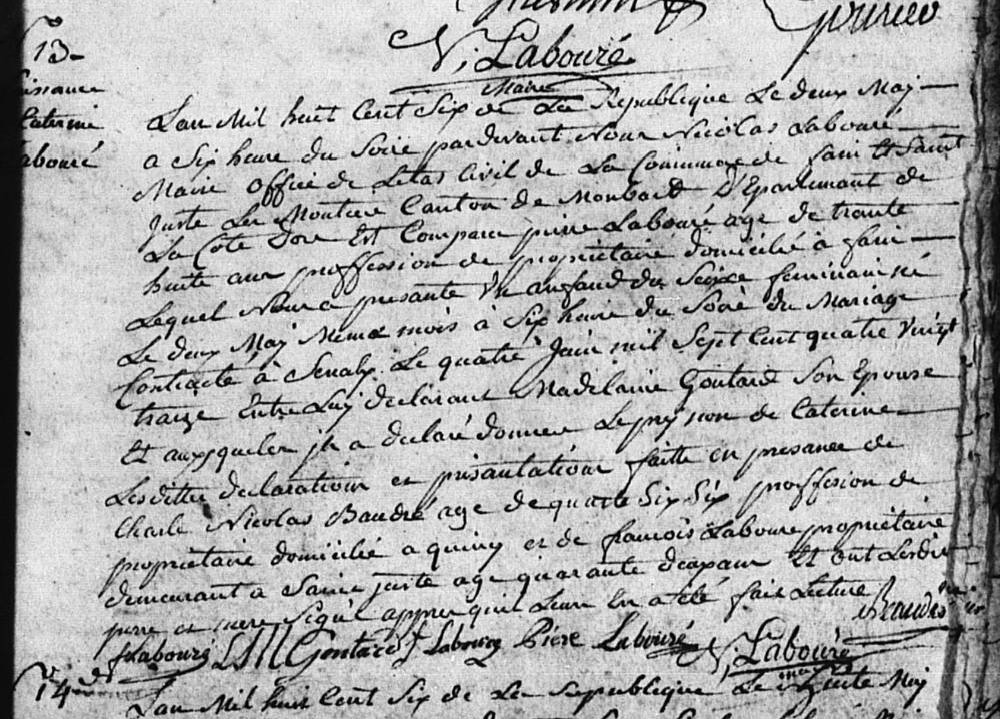 13
N. Labouré
Maire
issance
Caterine
abouré
Lan Mil huit Cent Six de La Republique Le deux May
a Six heure du Soire pardevant Nous Nicolas Labouré
Maire officié de Letas Civil de La Commune de fain Et Saint
Juste Les Moutier Canton de Monbard D'Epartement de
La Cote Dore Est Comparu pierre Labouré age de trante
huite ans proffession de propriétaire domicilié à fain
Lequel Nous a presanté Un anfand du Seixe feminain né
Le deux May Meme mois à Six heure du Soiré du Mariage
Contracté à Senally Le quatre Juin mil Sept Cent quatre Vingt
traize Entre Luy declarant Madelaine Gontard Son Epouse
Et auxsqueles jl a declaré donner Le preynon de Caterine
Lesdittes declaration et présantation faitte en presance de
Charle Nicolas Baudré age de quatre Six Six proffesion de
propriétaire domicilié a quincy et de françois Laboure propriétaire
demeurant a Saint juste age quarante deux ans Et ont Lesdit
pere et mere Signé apprer quil Leur En a été fait Lecture
Labouré LM Gontard f Labouré Piere Labouré N. Labouré
14
Lan Mil huit Cent Six de La Republique Le May